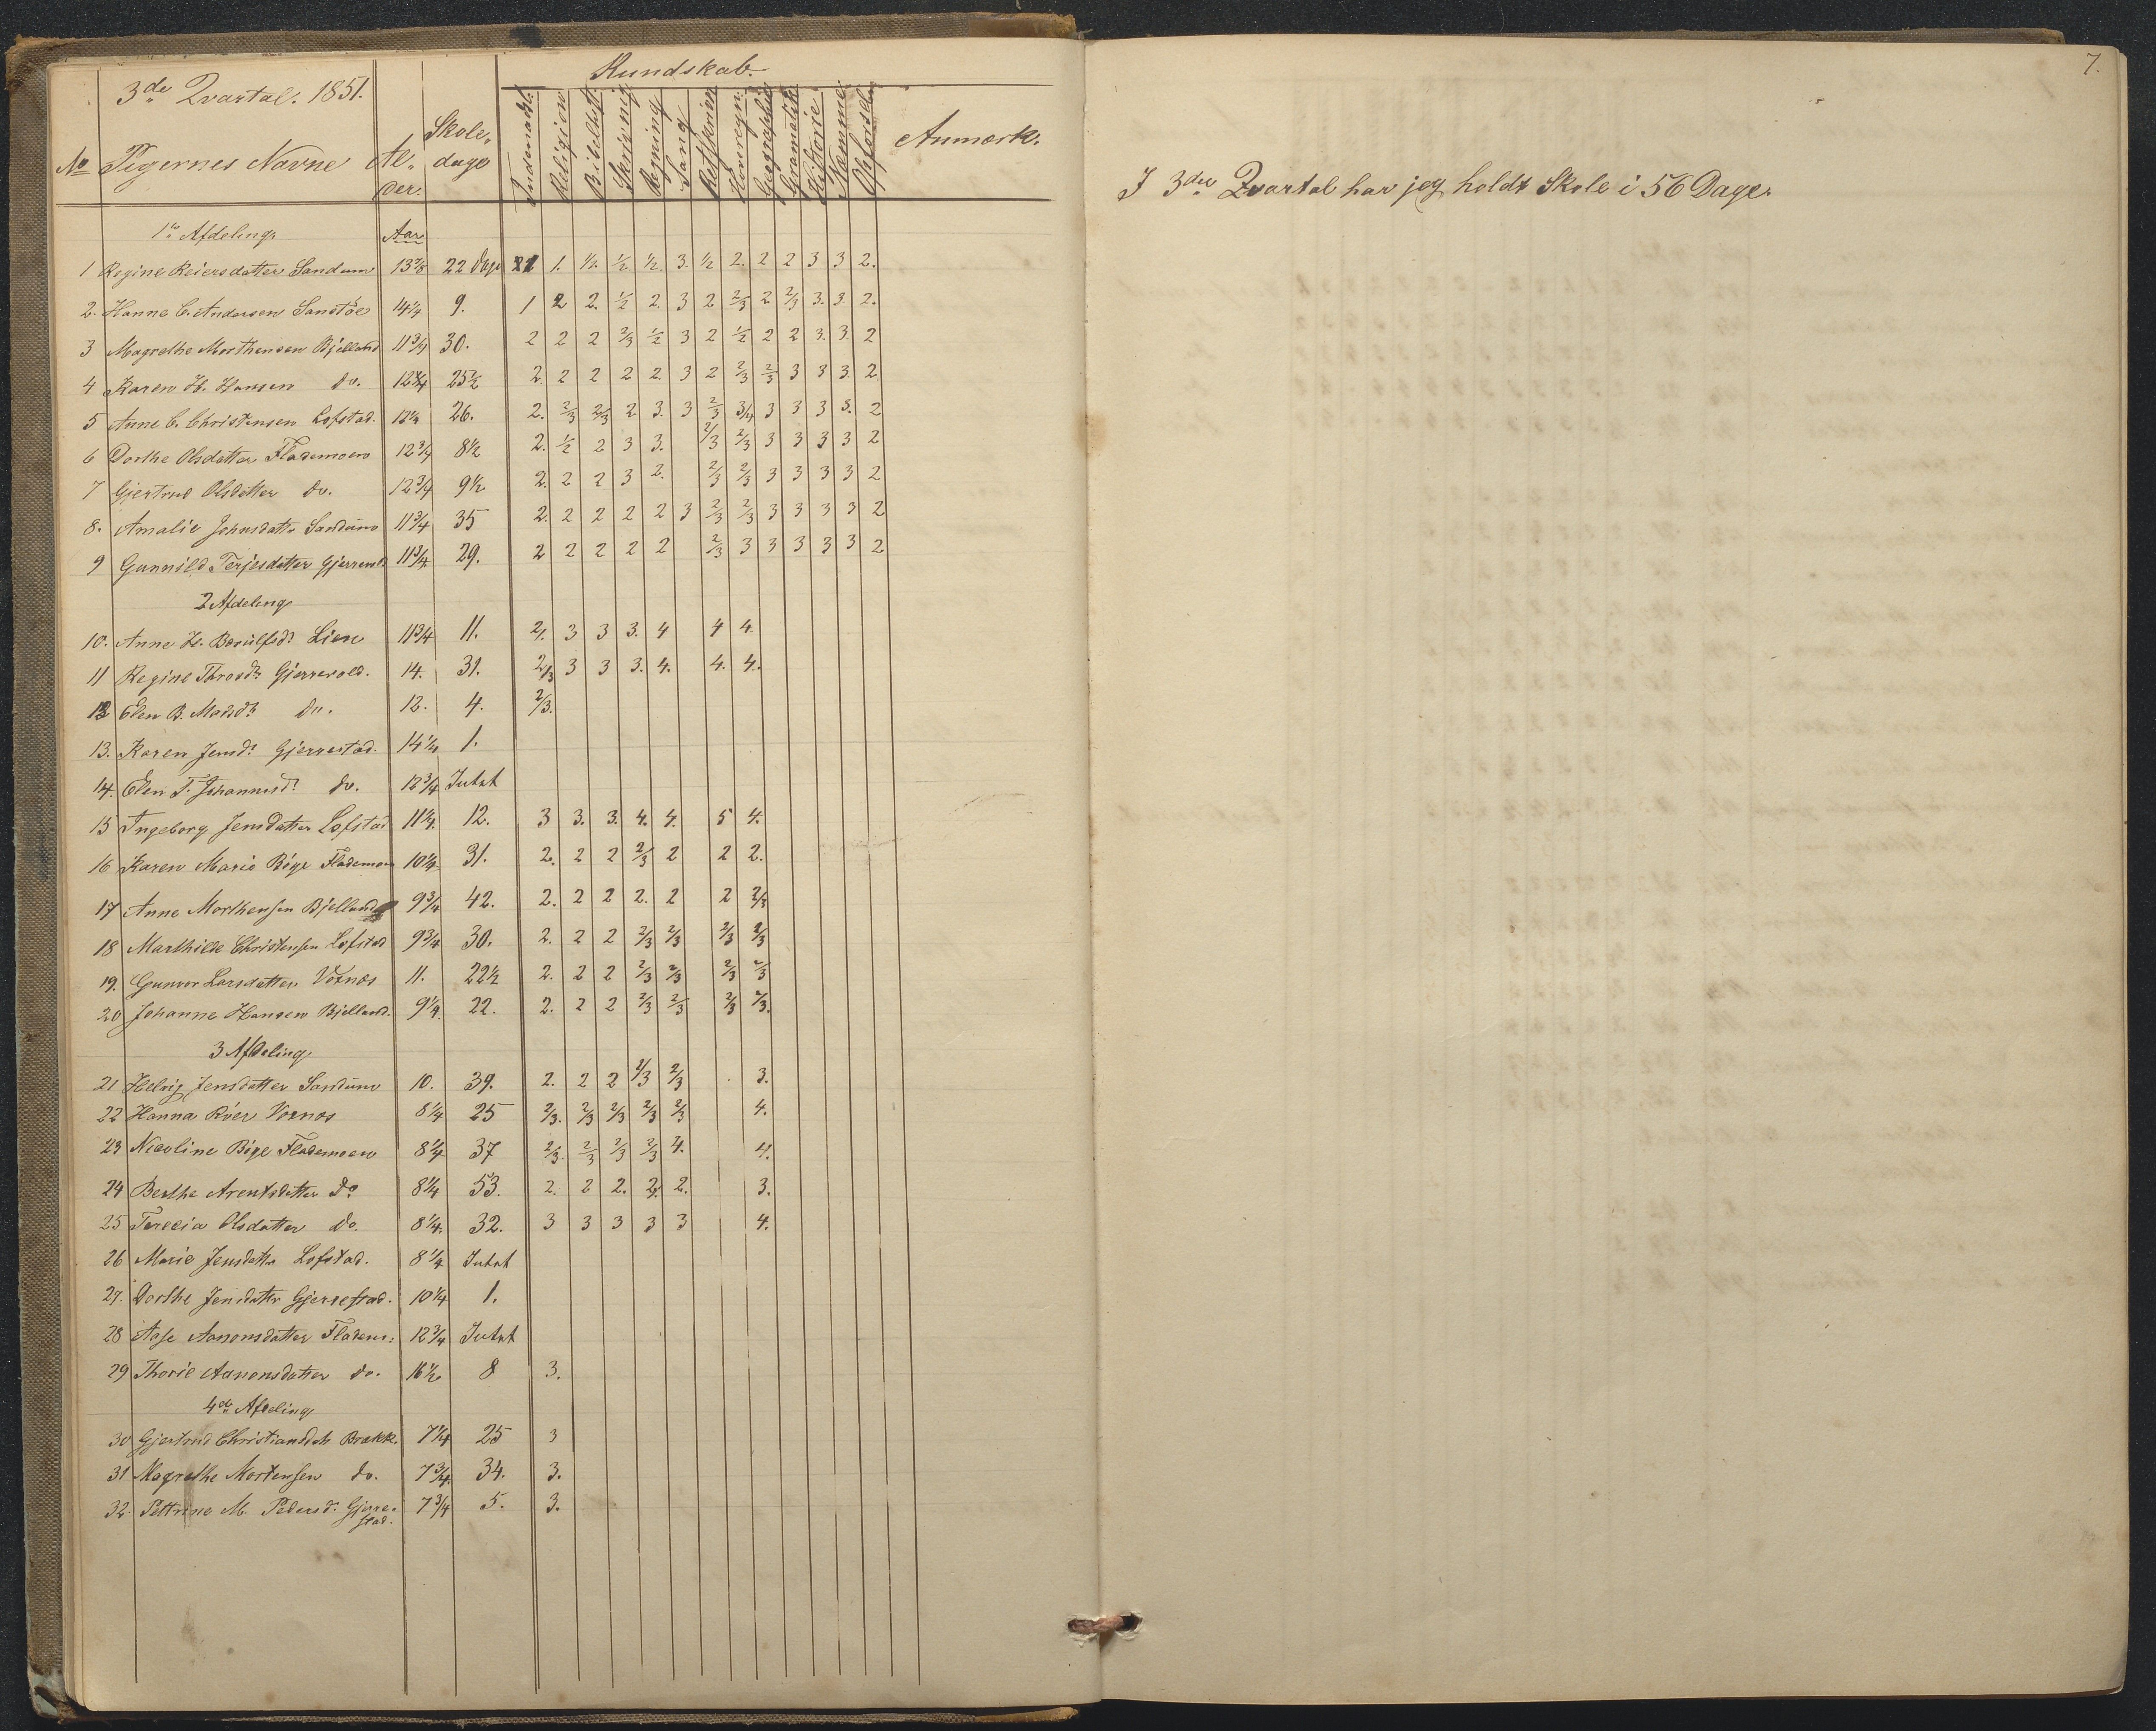 3de Qvartal. 1851.
Kundskab.
No Pigernes Navne Al- der. Skole- dage Indenadl. Religion Bibelhist. Skrivning Regning Sang Retskrivn Hovregn. Geographie Gramatik Historie Opførsel Anmærk.
1e Afdeling. Aar
1 Regine Reiersdatter Sandum 13 7/8 22 dage 1 1. 1/2. 1/2 1/2. 3. 1/2 2. 2 2 3 3 2.
2. Hanne C. Andersen Sanstöe 14 1/4 9. 1 2 2. 1/2 2. 3 2 2/3 2 2/3 3. 3. 2.
3 Magrethe Morthensen Bjelland 11 3/4 30. 2 2 2 2/3 1/2 3 2 1/2 2 2 3. 3. 2
4 Karen H. Hansen do. 25 1/2 2. 2 2 2 2. 3 2 2/3 2/3 3 3 3. 2
5 Anne C. Christensen Lofstad. 26. 2. 2/3 2/3 2 3. 3 2/3 3/4 3 3 3 3. 2
6 Dorthe Olsdatter Flademoen 12 3/4 8 1/2 2. 1/2 2 3 3. 2/3 2/3 3 3 3 3 2
7 Gjertrud Olsdatter do. 12 3/4 9 1/2 2. 2 2 3 2. 2/3 2/3 3 3 3 3 2
8. Amalie Johnsdattr Sandum 11 3/4 35 2. 2 2 2 2 3 2/3 2/3 3 3 3 3 2
9 Gunnild Terjesdatter Gjerrest 11 3/4 29. 2 2 2 2 2 2/3 3 3 3 3 3 2
2 Afdeling
10. Anne H. Lien 11 3/4 11. 2/. 3 3 3. 4 4 4.
11 Regine Throsdr Gjerrevold. 14. 31. 2/3 3 3 3. 4. 4. 4.
12 Elen B. Madsdr do. 12. 4. 2/3.
13. Karen Jensdr Gjerrestad. 14 1/2 1.
14. Elen T. Johannisdr do. 12 3/4 Intet
15 Ingeborg Jensdatter Lofstad 11 1/4. 12. 3 3. 3. 4. 4. 5 4.
16 Karen Marie Böge Flademoen 10 1/4 31. 2. 2 2 2/3 2 2 2.
17 Anne Morthensen Bjelland 9 3/4 42. 2. 2 2 2. 2 2 2/3
18 Marthilde Christensen Lofstad 9 3/4 30. 2. 2 2 2/3 2/3 2/3 2/3
19. Gunvor Larsdatter Voxnæs 11. 22 1/2 2. 2 2 2/3 2/3 2/3 2/3
20 Johanne Hansen Bjelland. 9 1/4. 22. 2. 2 2 2/3 2/3 2/3 2/3.
3 Afdeling
21 Helvig Jensdatter Sandum 10. 39. 2. 2 2 2/3 2/3 3.
22 Hanna Röer Voxnæs 8 1/4 25 2/3. 2/3 2/3 2/3 2/3 4.
23 Nicoline Böge Flademoen 8 1/4 37 2/3. 2/3 2/3 2/3 4. 4.
24 Berthe Arentsdatter Do 8 1/4 53. 2. 2 2. 2/. 2. 3.
25 Terecia Olsdatter do. 8 1/4. 32. 3 3 3 3 3 4.
26 Marie Jensdattr Lofstad. 8 1/4 Intet
27. Dorthe Jensdattr Gjerrestad. 10 1/4 1.
28 Aase Aanonsdatter Fladem: 12 3/4 Intet
29 Thorie Aanonsdatter do. 16 1/2 8 3.
4de Afdeling
30 Gjertrud Christiansdatr Brækk. 7 1/4 25 3
31 Magrethe Mortensen do. 7 3/4. 34. 3.
32. Pettrine M. Pedersdr Gjerre- stad. 7 3/4 5. 3.
7.
I 3die Qvartal har jeg holdt Skole i 56 Dage.